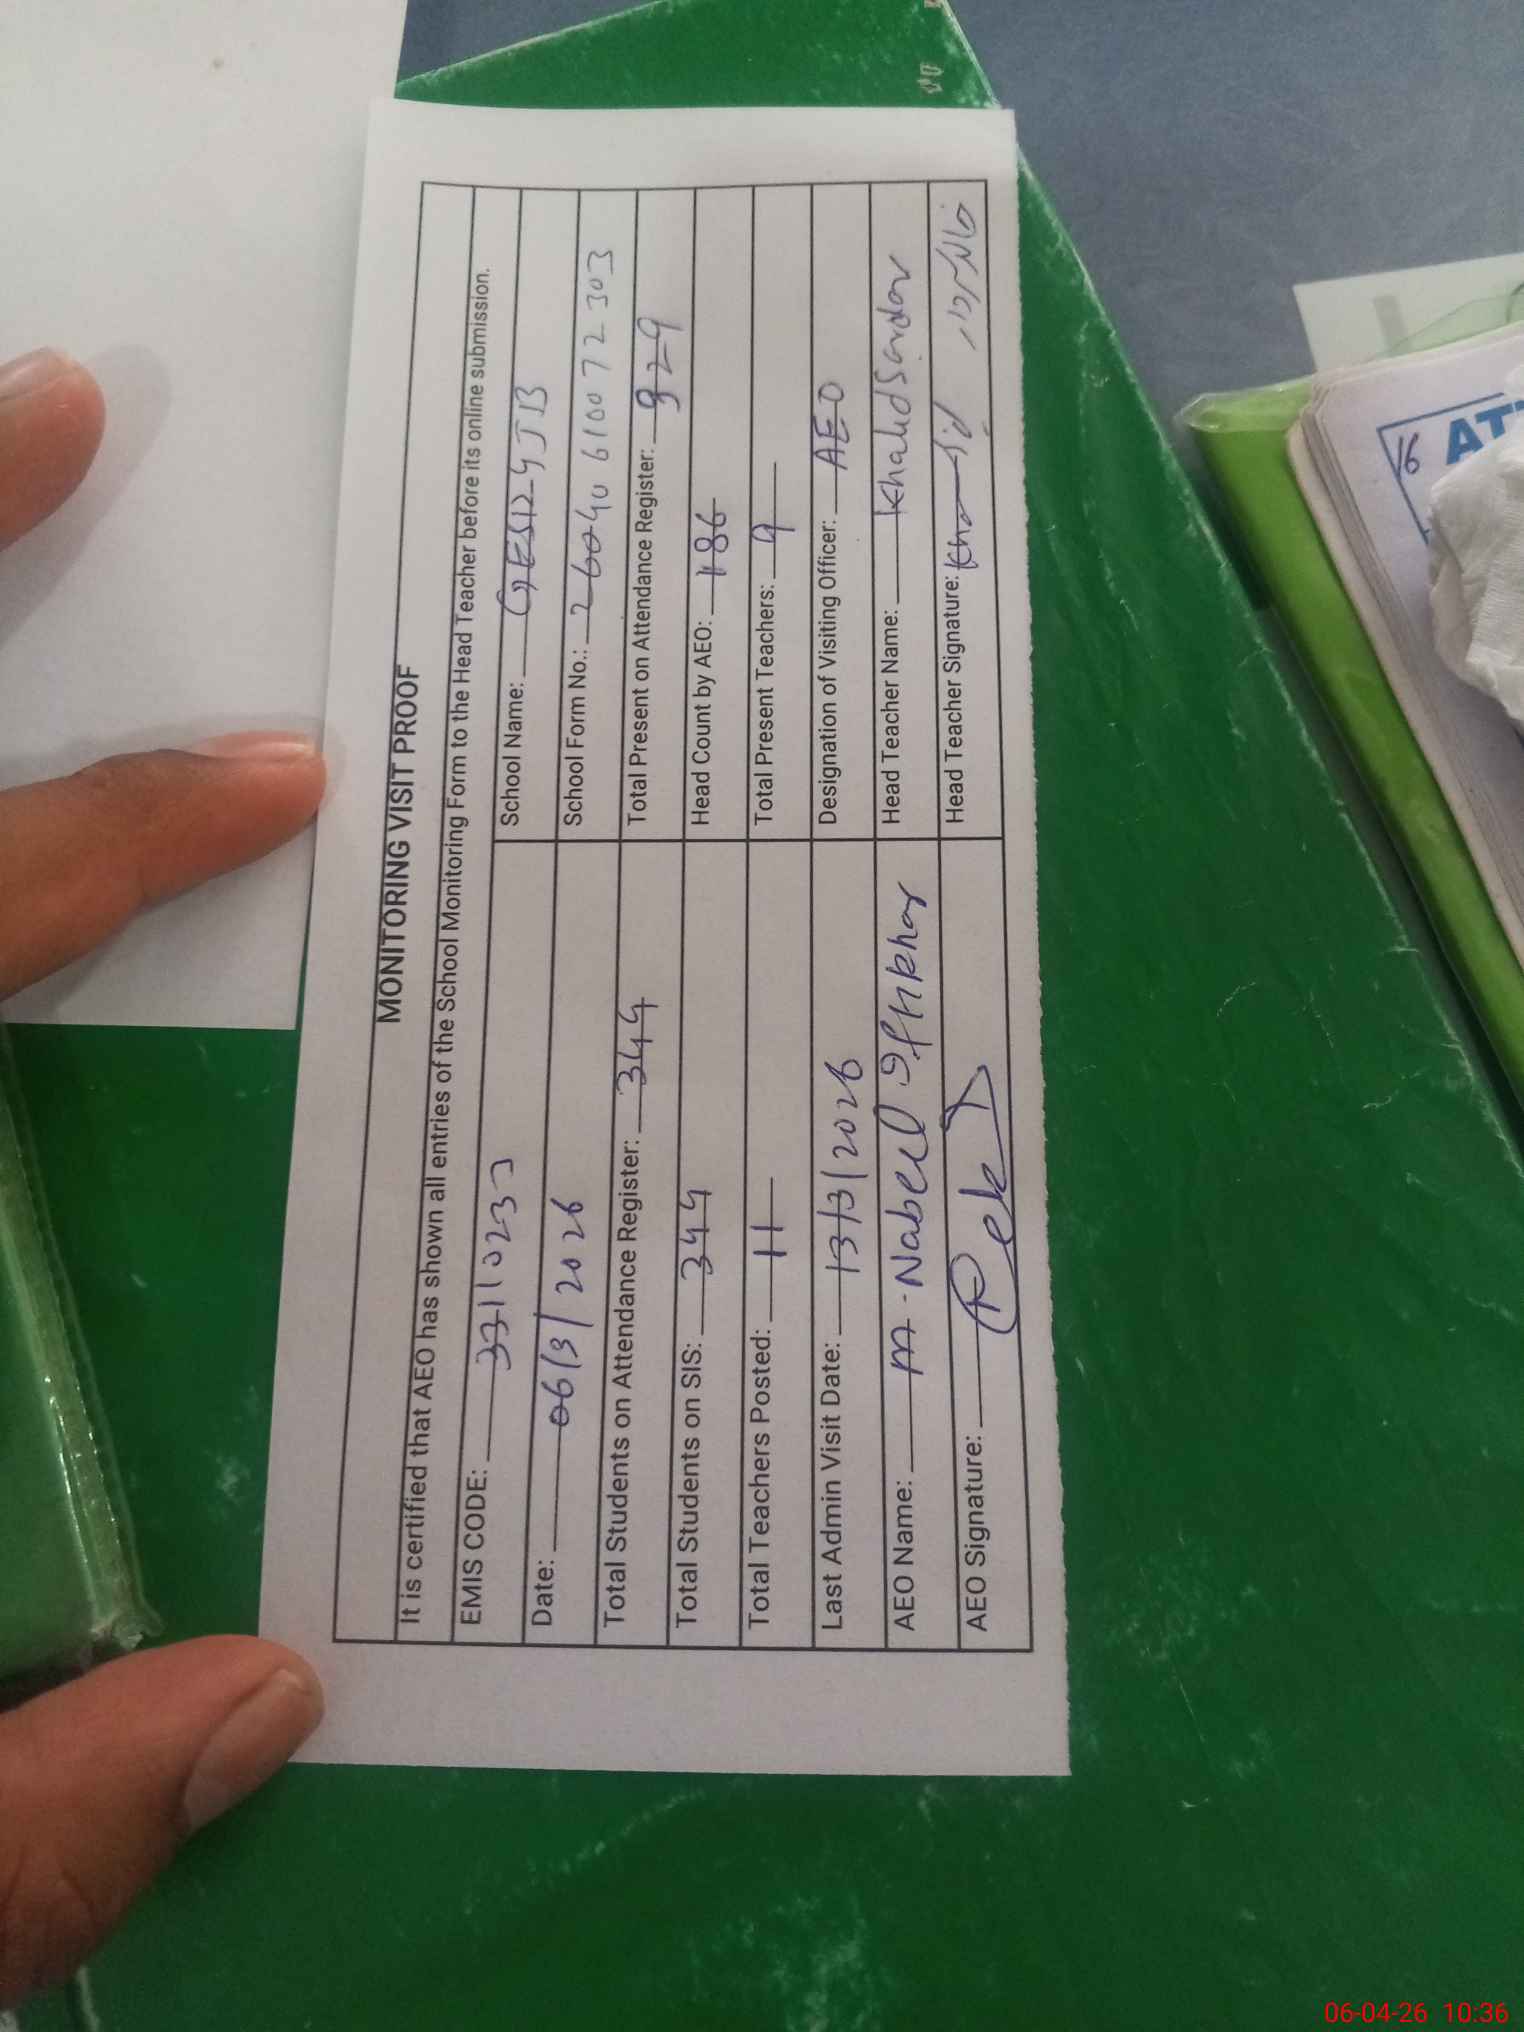 MONITORING VISIT PROOF
It is certified that AEO has shown all entries of the School Monitoring Form to the Head Teacher before its online submission.
EMIS CODE: 33110233 School Name: GES124JB
Date: 06/3/2026 School Form No.: 26040610072303
Total Students on Attendance Register: 344 Total Present on Attendance Register:
Total Students on SIS: 344 Head Count by AEO: 186
Total Teachers Posted: 11 Total Present Teachers: 9
Last Admin Visit Date: 13/3/2026 Designation of Visiting Officer: AEO
AEO Name: M. Nabeel Iftikhar Head Teacher Name: Khalid Sardar
AEO Signature: Head Teacher Signature:
16
AT
06-04-26 10:36